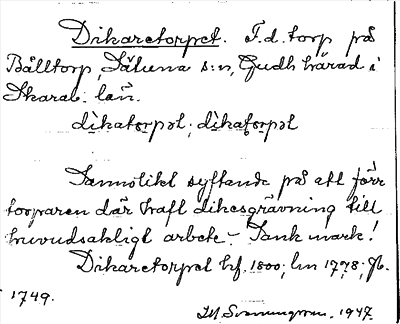 Dikaretorpet. F.d. torp på
Bålltorp, Säluna s:n, Gudh. härad i
Skarab. län.
dikatorpəl; dikatorpəl
Sannolikt syftande på att förr
torparen där haft dikesgrävning till
huvudsakligt arbete. - Sank mark!
Dikaretorpet hf. 1800; lm 1778; fb.
1749.
Svenningsson. 1947.